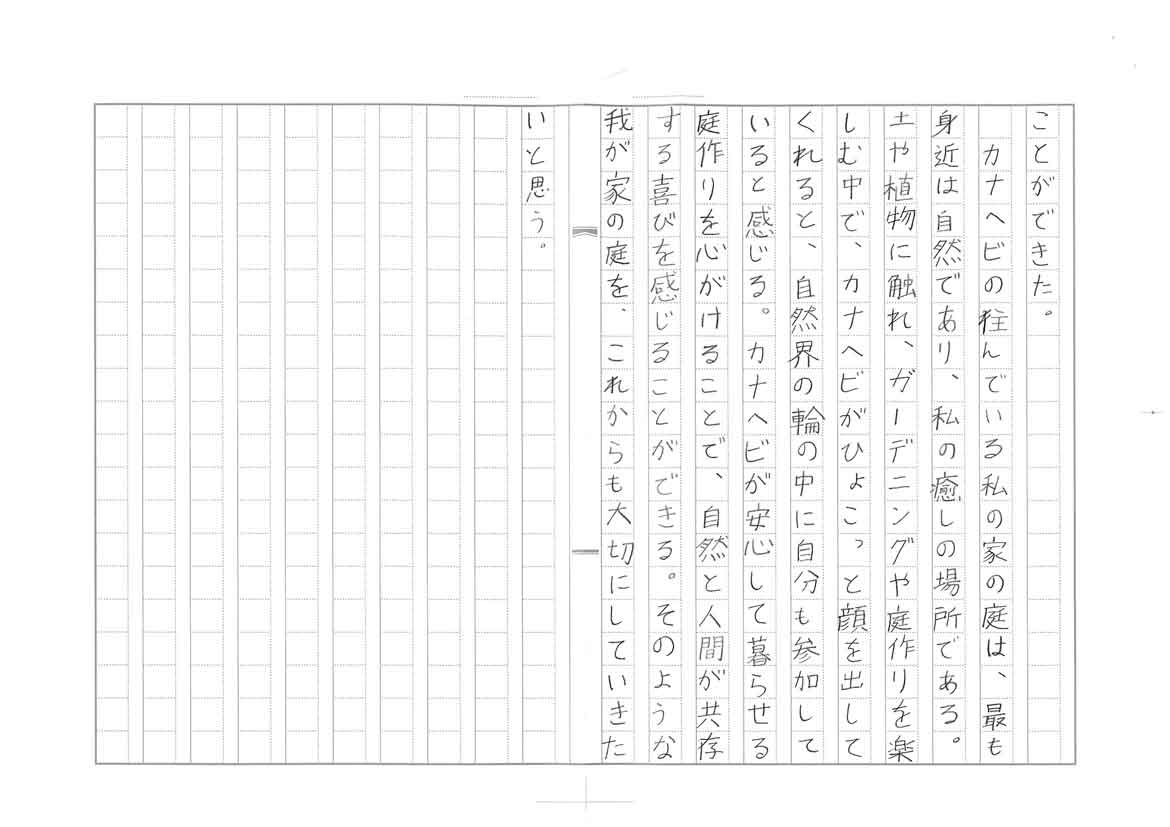 ことができた。
　カナヘビの住んでいる私の家の庭は、最も
身近は自然であり、私の癒しの場所である。
土や植物に触れ、ガーデニングや庭作りを楽
しむ中で、カナヘビがひょこっと顔を出して
くれると、自然界の輪の中に自分も参加して
いると感じる。カナヘビが安心して暮らせる
庭作りを心がけることで、自然と人間が共存
する喜びを感じることができる。そのような
我が家の庭を、これからも大切にしていきた
いと思う。